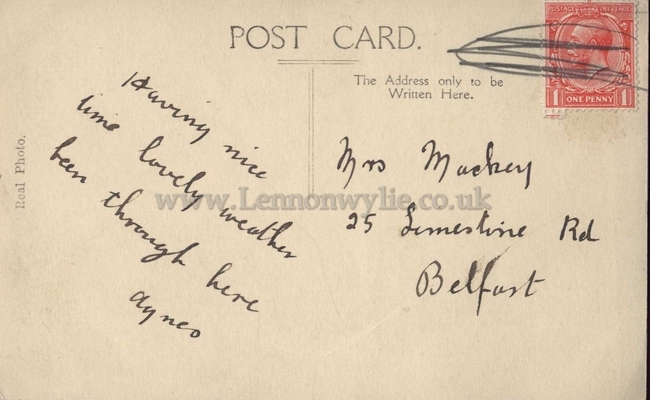 POST CARD.
POSTAGE REVENUE
1 ONE PENNY 1
The Address only to be
Written Here.
Real Photo.
Having nice
time lovely weather
been through here
Agnes
www.Lennonwylie.co.uk
Mrs Mackey
25 Limestone Rd
Belfast